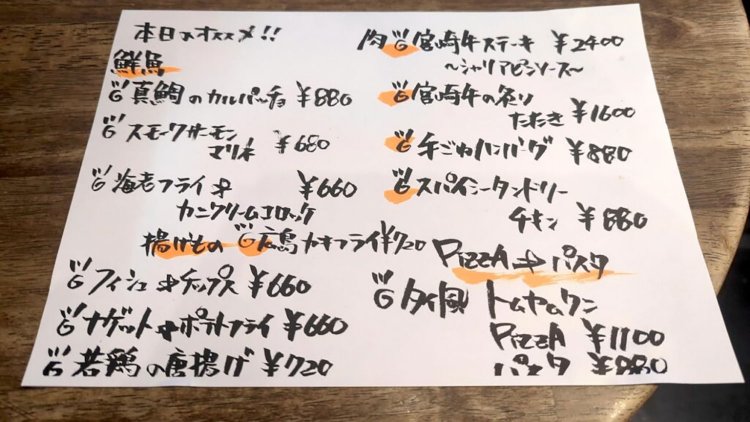 本日のオススメ!!
鮮魚
真鯛のカルパッチョ ¥880
スモークサーモン
マリネ ¥680
海老フライ& ¥660
カニクリームコロッケ
揚げもの 広島カキフライ ¥720
フィッシュ&チップス ¥660
ナゲット&ポテトフライ ¥660
若鶏の唐揚げ ¥720
肉 宮崎牛ステーキ ¥2400
〜シャリアピンソース〜
宮崎牛の炙り
たたき ¥1600
手ごねハンバーグ ¥880
スパイシータンドリー
チキン ¥880
PIZZA & パスタ
タイ風 トムヤムクン
PIZZA ¥1100
パスタ ¥880